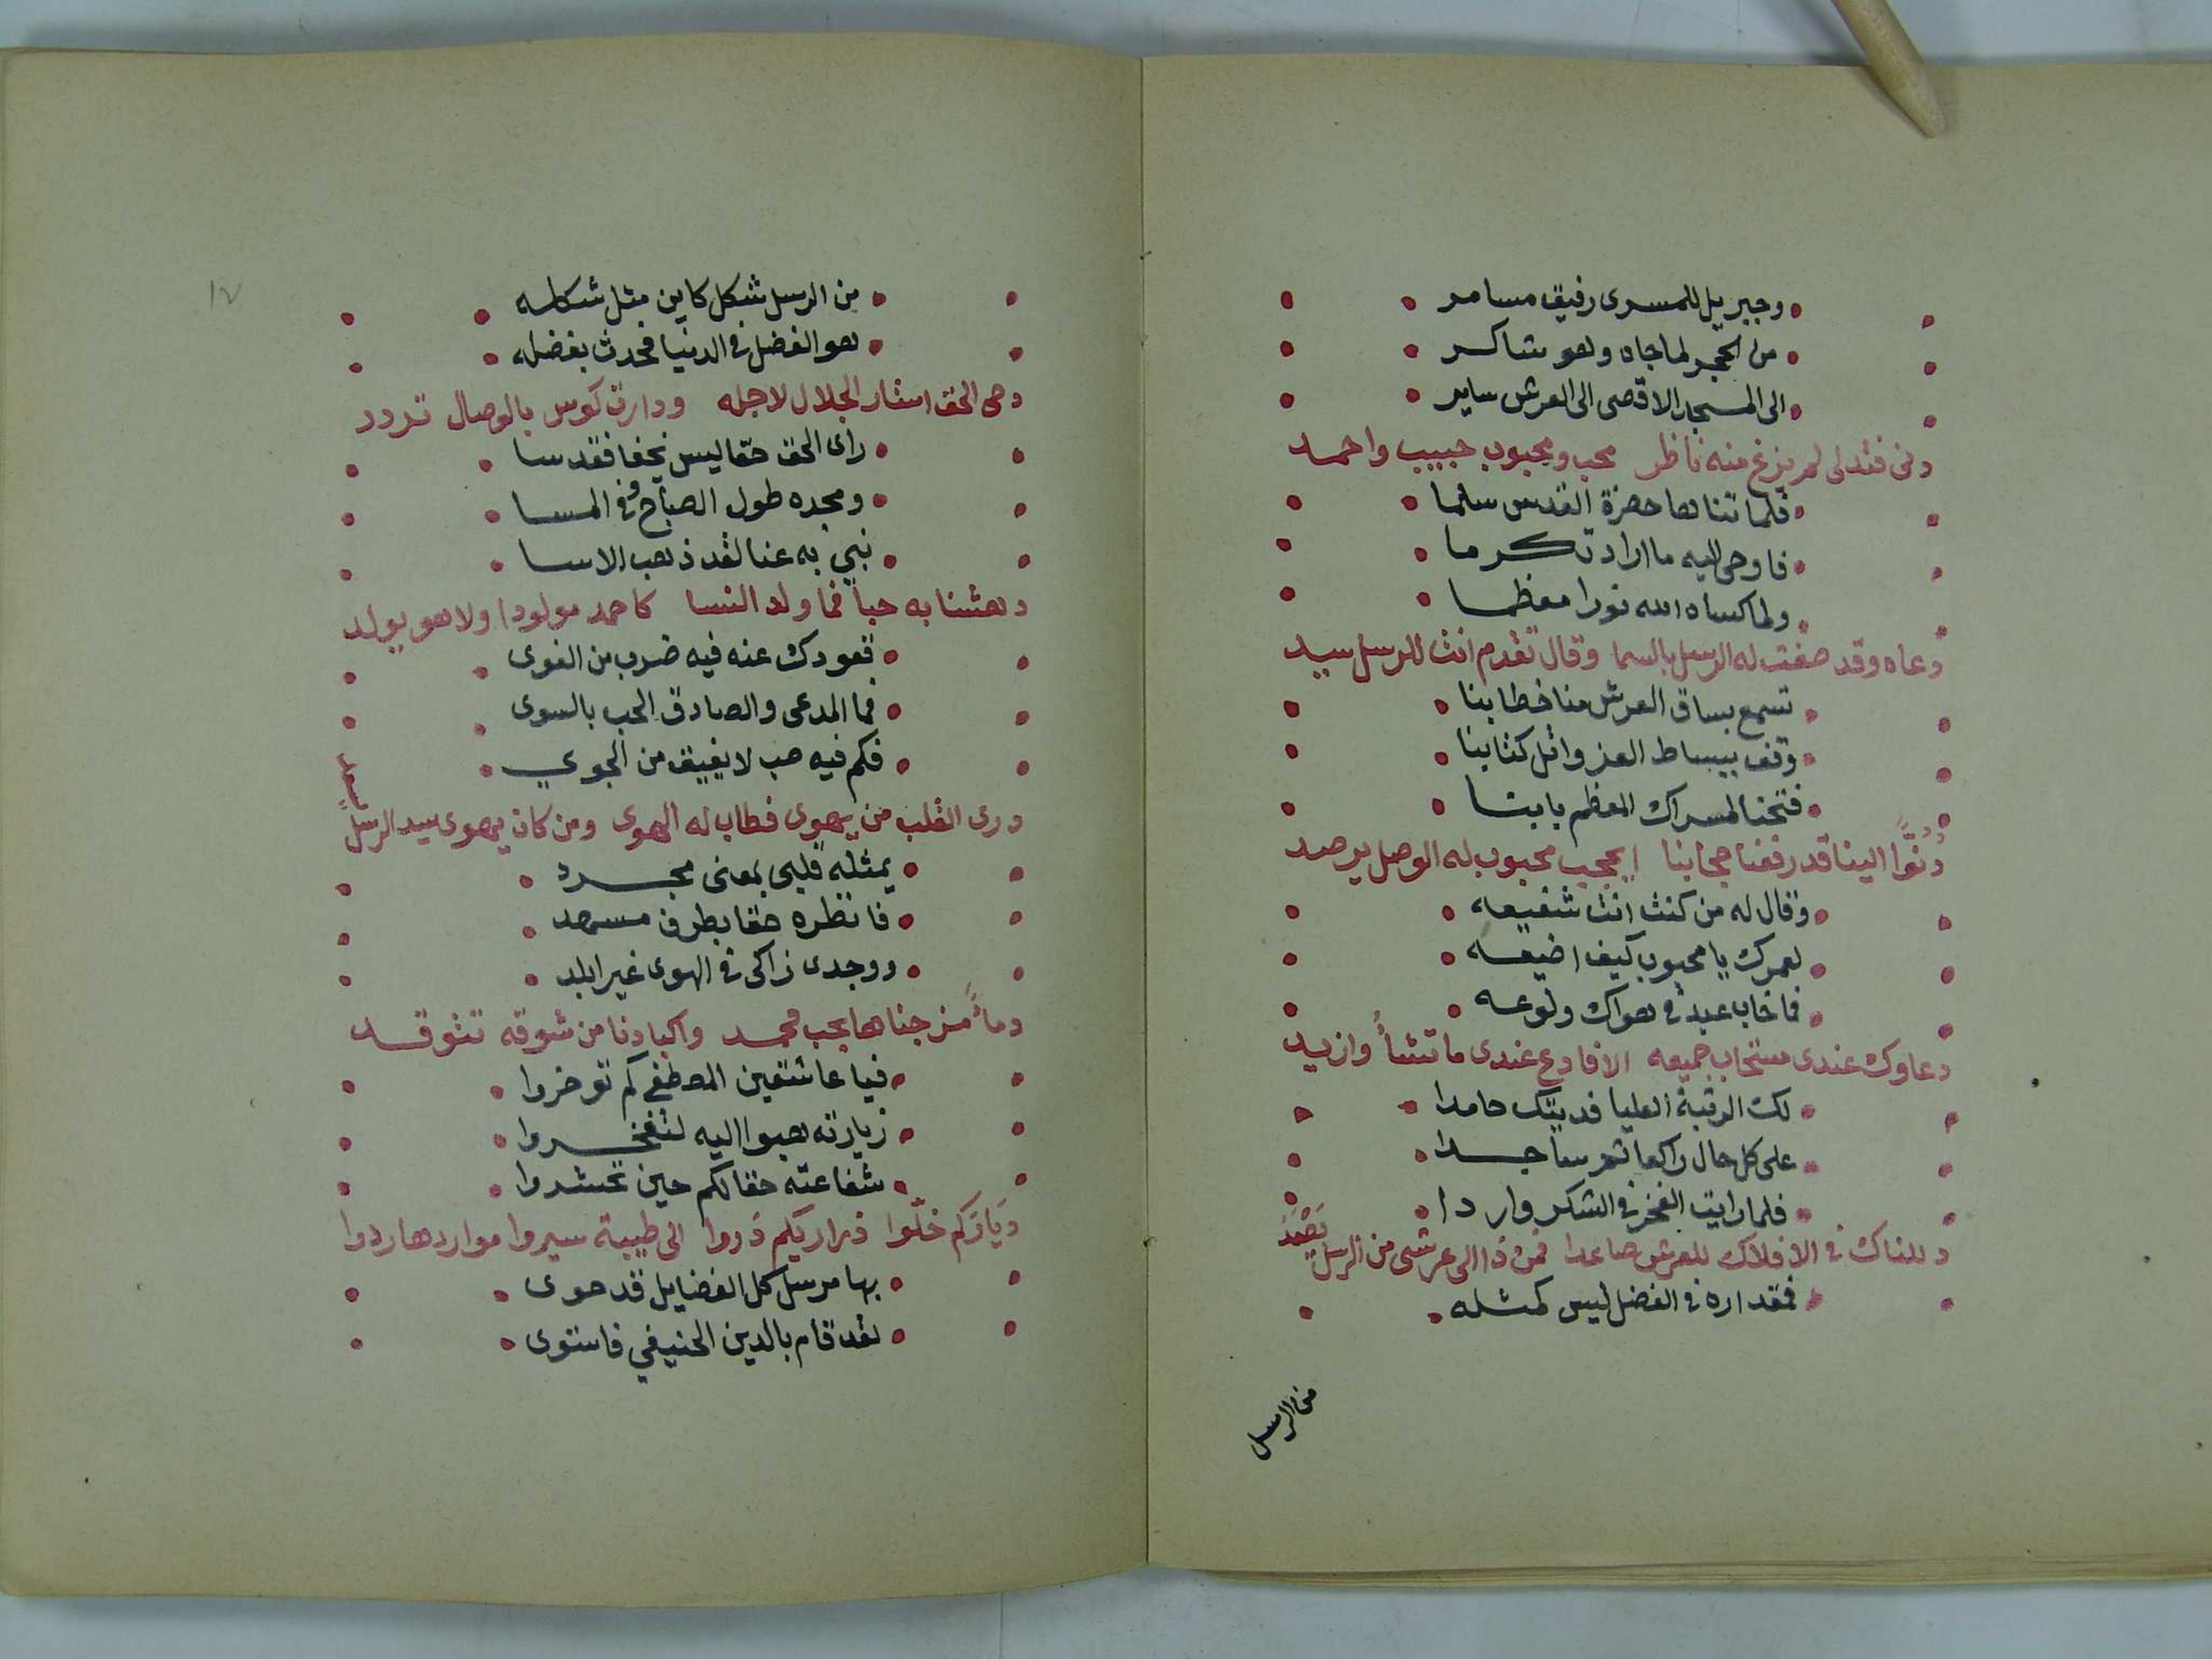 وجبريل للمسرى رفيق مسامر
من الحجر لما جاه وهو شاكر
الى المسجد الاقصى الى العرش ساير
دنى فتدلى لم يزغ منه ناظر محب ومحبوب حبيب واحمد
فلما تناها حضرة القدس سلما
فاوحى اليه ما اراد تكرما
ولما كساه الله نورا معظما
دعاه وقد صفت له الرسل بالسما وقال تقدم انت للرسل سيد
تسمع بساق العرش منا خطابنا
وقف ببساط العز واتل كتابنا
فتحنا لمسراك المعظم بابنا
دُنُوًّا الينا قد رفعنا حجابنا ايحجب محبوب له الوصل يرصد
وقال له من كنت انت شفيعه
لعمرك يا محبوب كيف اضيعه
فما خاب عبد في هواك ولوعه
دعاوك عندى مستجاب جميعه الا فادع عندى ما تشأ وازيد
لك الرتبة العليا فديتك حامدا
على كل حال راكعا ثم ساجدا
فلما رايت الفخر في الشكر واردا
دللناك في الافلاك للعرش صاعدا فمن ذا الى عرشى من الرسل يَصْعَدُ
فمقداره في الفضل ليس كمثله
من الرسل
١٧
من الرسل شكل كاين مثل شكله
هو الفضل في الدنيا فحدث بفضله
دحى الحق استار الجلال لاجله ودارت كوس بالوصال تردد
راى الحق حقا ليس يخفا فقدسا
ومجده طول الصباح وفي المسا
نبي به عنا لقد ذهب الاسا
دهشنا به حباً فما ولد النسا كاحمد مولودا ولا هو يولد
قعودك عنه فيه ضرب من الغوى
فما المدعى والصادق الحب بالسوى
فكم فيه صب لا يفيق من الجوي
درى القلب من يهوى فطاب له الهوى ومن كان يهوى سيد الرسل
يمثله قلبى بمعنى مجرد
فانظره حقا بطرف مسهد
ووجدى زاكى في الهوى غير ابلد
دماً مزجناها بحب محمد واكبادنا من شوقه تتوقد
فيا عاشقين المصطفى كم توخروا
زيارته هبوا اليه لتفخروا
شفاعته حقا لكم حين تحشروا
دَيَارَكم خلّوا ذراريكم ذروا الى طيبة سيروا مواردها ردوا
بها مرسل كل الفضايل قد حوى
لقد قام بالدين الحنيفي فاستوى